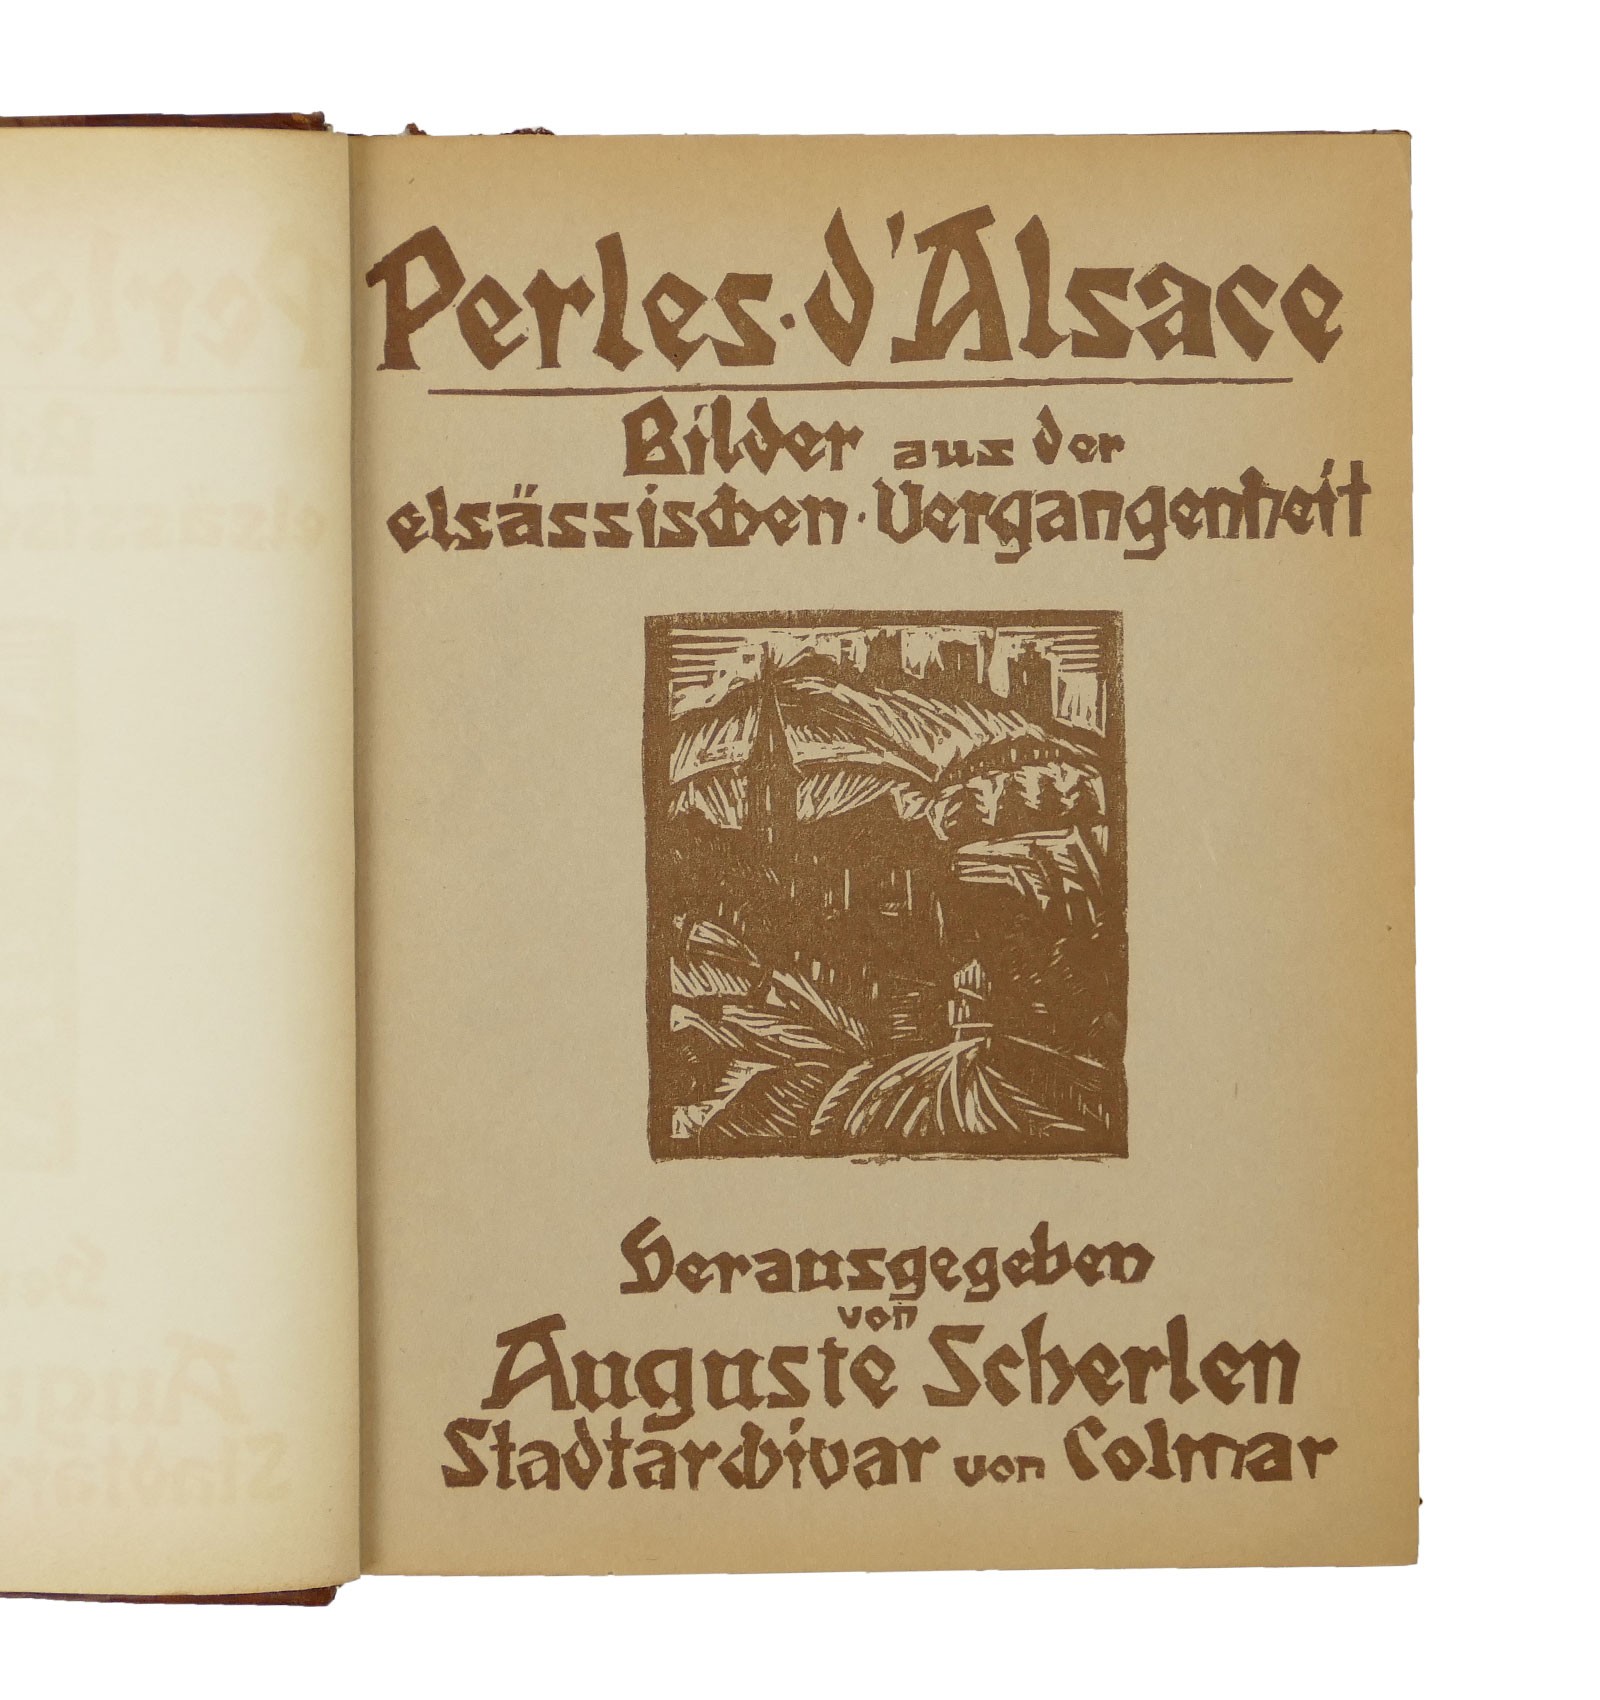 Perles · d'Alsace
Bilder aus der
elsässischen · Vergangenheit
Herausgegeben
von
Auguste Scherlen
Stadtarchivar von Colmar